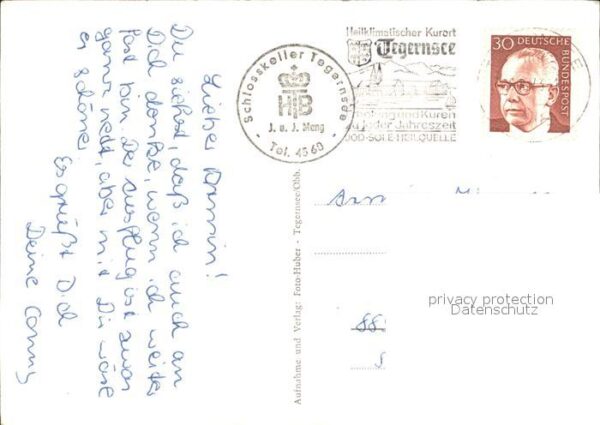 Lieber Armin!
Du siehst, daß ich auch an
Dich denke, wenn ich weiter
fort bin. Der Ausflug ist zwar
ganz nett, aber mit Dir wäre
es schöner.
Es grüßt Dich
Deine Conny
Schlosskeller Tegernsee
HTB
J. u. J. Meng
Tel. 4560
Heilklimatischer Kurort
Tegernsee
und Kuren
zu jeder Jahreszeit
JOD-SOLE-HEILQUELLE
30 DEUTSCHE
BUNDESPOST
Aufnahme und Verlag: Foto-Huber - Tegernsee/Obb.
privacy protection
Datenschutz
88